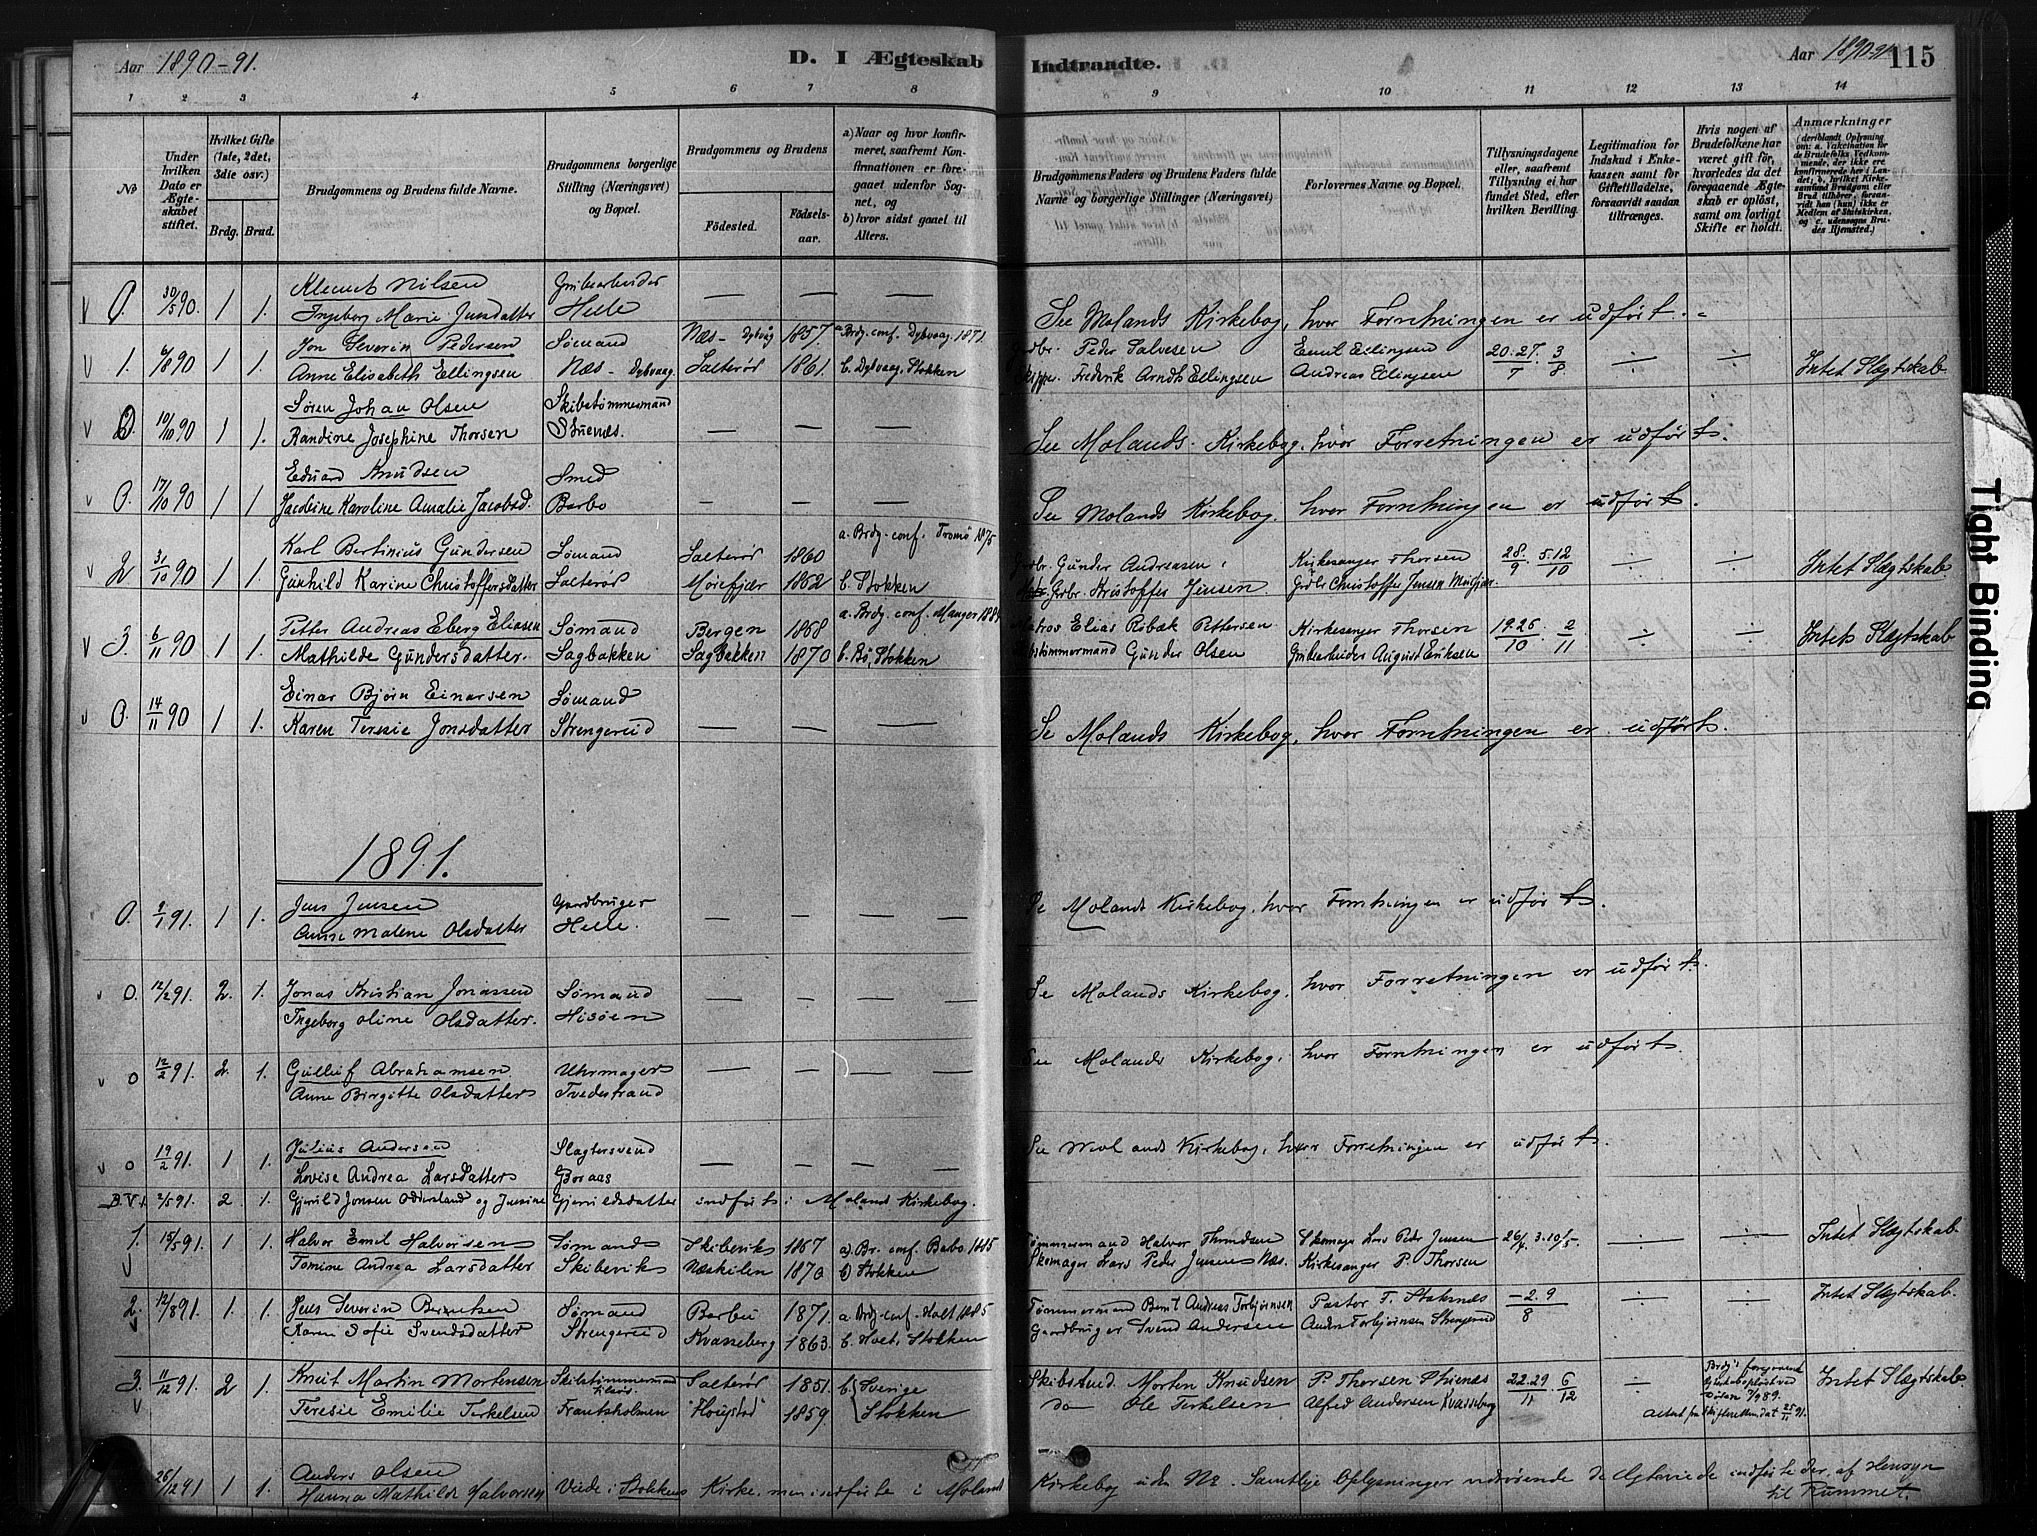 Aar 1890-91.
D. I Ægteskab Indtraadte.
Aar 1890-91
115
1 2 3 4 5 6 7 8 9 10 11 12 13 14
No
Under hvilken Dato er Ægteskabet stiftet.
Hvilket Gifte (1ste, 2det, 3die osv.)
Brdg. Brud.
Brudgommens og Brudens fulde Navne.
Brudgommens borgerlige Stilling (Næringsvei) og Bopæl.
Brudgommens og Brudens
Fødested. Fødselsaar.
a) Naar og hvor konfirmeret, saafremt Konfirmationen er foregaaet udenfor Sognet, og
b) hvor sidst gaaet til Alters.
Brudgommens Faders og Brudens Faders fulde Navne og borgerlige Stillinger (Næringsvei)
Forlovernes Navne og Bopæl.
Tillysningsdagene eller, saafremt Tillysning ei har fundet Sted, efter hvilken Bevilling.
Legitimation for Indskud i Enkekassen samt for Giftetilladelse, forsaavidt saadan tiltrænges.
Hvis nogen af Brudefolkene har været gift før, hvorledes da det foregaaende Ægteskab er opløst, samt om lovligt Skifte er holdt.
Anmærkninger
(deriblandt Oplysning om: a. Vakcination for de Brudefolks Vedkommende, der ikke ere konfirmerede her i Landet; b. hvilket Kirkesamfund Brudgom eller Brud tilhører, forsaavidt han (hun) ikke er Medlem af Statskirken, og c. udensogns Brudes Hjemsted.)
v 0. 30/5 90. 1 1. Klemet Nilsen Grubearbeider — — —
Ingeborg Marie Jensdatter Helle See Molands Kirkebog, hvor Forretningen er udført.
v 1. 6/8 90 1 1. Jon Severin Pedersen Sømand Næs - Dybvåg 1857. a Brdg. conf. Dybvaag 1871. Grdbr. Peder Salvesen Emil Ellingsen 20.27/7 . 3/8 ÷ ÷ Intet Slægtskab
Anne Elisabeth Ellingsen Næs - Dybvaag. Salterød 1861. b. Dybvaag, Stokken Skipper Frederik Arndt Ellingsen Andreas Ellingsen
v 0. 10/10 90 1 1. Søren Johan Olsen Skibstømmermand
Randine Josephine Thorsen Stuenæs. — — — See Molands Kirkebog, hvor Forretningen er udført.
v 0. 17/10 90 1 1 Eduard Knudsen Smed
Jacobine Karoline Amalie Jacobsd. Barbo — — — See Molands Kirkebog, hvor Forretningen er udført.
v 2 31/10 90 1 1. Karl Bertinius Gundersen Sømand Salterød 1860 a. Brdg. conf. Tromø 1875 Grdbr. Gunder Andreasen Kirkesanger Thorsen 28/9 . 5.12/10 ÷ ÷ Intet Slægtskab
Gunhild Karine Christoffersdatter Salterød Morefjær 1852 b. Stokken Grdbr. Kristoffer Jensen Grdbr Christoffer Jensen
v 3. 6/11 90 1 1. Petter Andreas Eberg Eliasen Sømand Bergen 1868 a. Brdg. conf. Manger Matros Elias Robæk Pettersen Kirkesanger Thorsen 19.26/10 . 2/11 ÷ ÷ Intet Slægtskab
Mathilde Gundersdatter. Sagbakken Sagbakken 1870 b. Bø, Stokken Skibstimmermand Gunder Olsen Grubearbeider August Eriksen
v 0. 14/11 90 1 1. Einar Bjørn Einarsen Sømand
Karen Teresie Jonsdatter Strengereid — — — Se Molands Kirkebog, hvor Forretningen er udført.
1891.
0. 2/1 91. 1 1. Jens Jensen Gaardbruger
Anne Malene Olsdatter Helle. — — — Se Molands Kirkebog, hvor Forretningen er udført.
v 0. 12/2 91. 2. 1. Jonas Kristian Jonassen Sømand — — — Se Molands Kirkebog, hvor Forretningen er udført.
Ingeborg Oline Olsdatter. Hisøen
v 0 12/2 91. 2. 1. Gulluf Abrahamsen Uhrmager — — — See Molands Kirkebog, hvor Forretningen er udført.
Anne Birgitte Olsdatter Tvedestrand
v 0 19/2 91. 1 1. Julius Andersen Slagtersvend — — — See Molands Kirkebog, hvor Forretningen er udført.
Lovise Andrea Larsdatter Goraas
2/5 91. 2. 1. Gjeruld Jonsen Odersland og Jensine Gjeruldsdatter indført i Moland Kirkebog.
1. 15/5 91. 1 1. Halvor Emil Halvorsen Sømand Skibevik 1867 a) Br. conf. Barbo. 1885 Tømmermand Halvor Skomager Lars Peder Jensen 26/4. 3.10/5. ÷ ÷ Intet Slægtskab
v Tomine Andrea Larsdatter Skibevik Næskilen 1870 b) Stokken Skomager Lars Peder Jensen Næs. Kirkesanger P. Thorsen
2. 12/8 91. 1. 1. Jens Severin Berntsen Sømand Barbu 1871. a. Brdg. conf. Holt 1885 Tømmermand Bernt Andreas Torbjørnsen Pastor F. — 2.9/8 ÷ ÷ Intet Slægtskab.
v Karen Sofie Svendsdatter Strengereid Kvasseberg 1863. b. Holt, Stokken Gaardbruger Svend Andersen Anders Torbjørnsen Strengereid
3. 11/12 91. 2 1. Knut Martin Mortensen Skibstimmermand Salterød 1851. b. Sverige Skibstmd. Morten Knudsen P. Thorsen Stuenæs 22.29/11 . 6/12 ÷ Brdg's foregaaende Ægteskab opløst ved Døden 89. Intet Slægtskab.
v Teresie Emilie Terkelsen Frantsholmen "Hougsted" 1859. Stokken do Ole Terkelsen Alfred Andersen Kvasseberg Attest fra Skifteretten dat 25/11 91.
26/12 91 1 1. Anders Olsen
Hanna Mathilde Halvorsen Viede i Stokkens Kirke, men indførte i Moland Kirkebog uden Nr. Samtlige Oplysninger vedrørende de Ægteviede indførte der, af Hensyn til Rummet.
Tight Binding